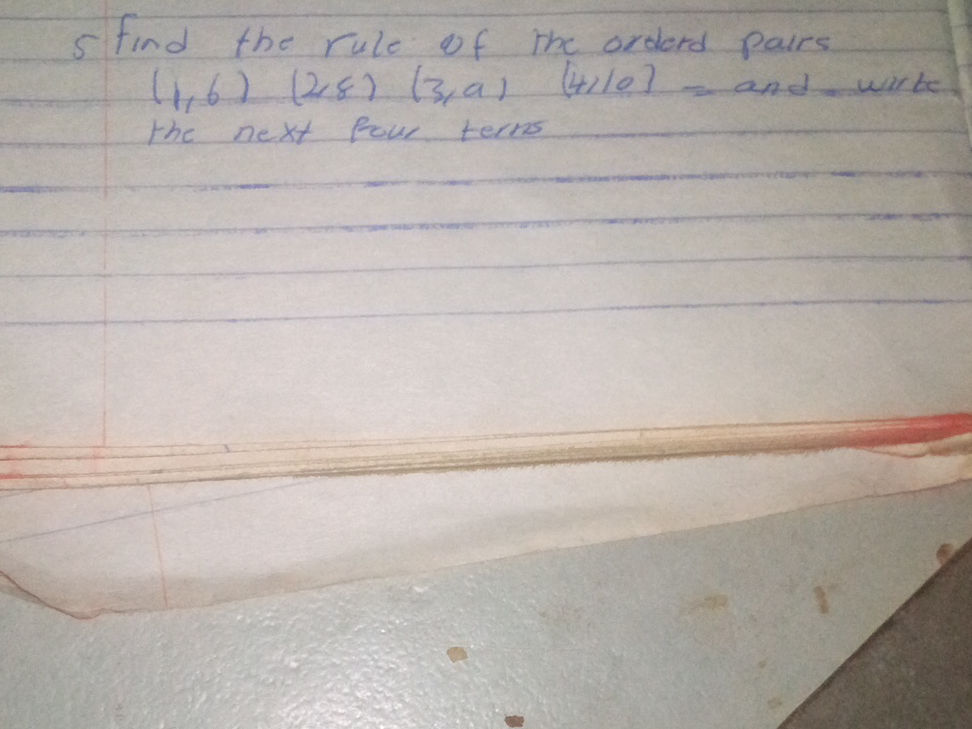 5 find the rule of the orderd pairs
(1,6) (2,8) (3,a) (4,10) = and write
the next four terms